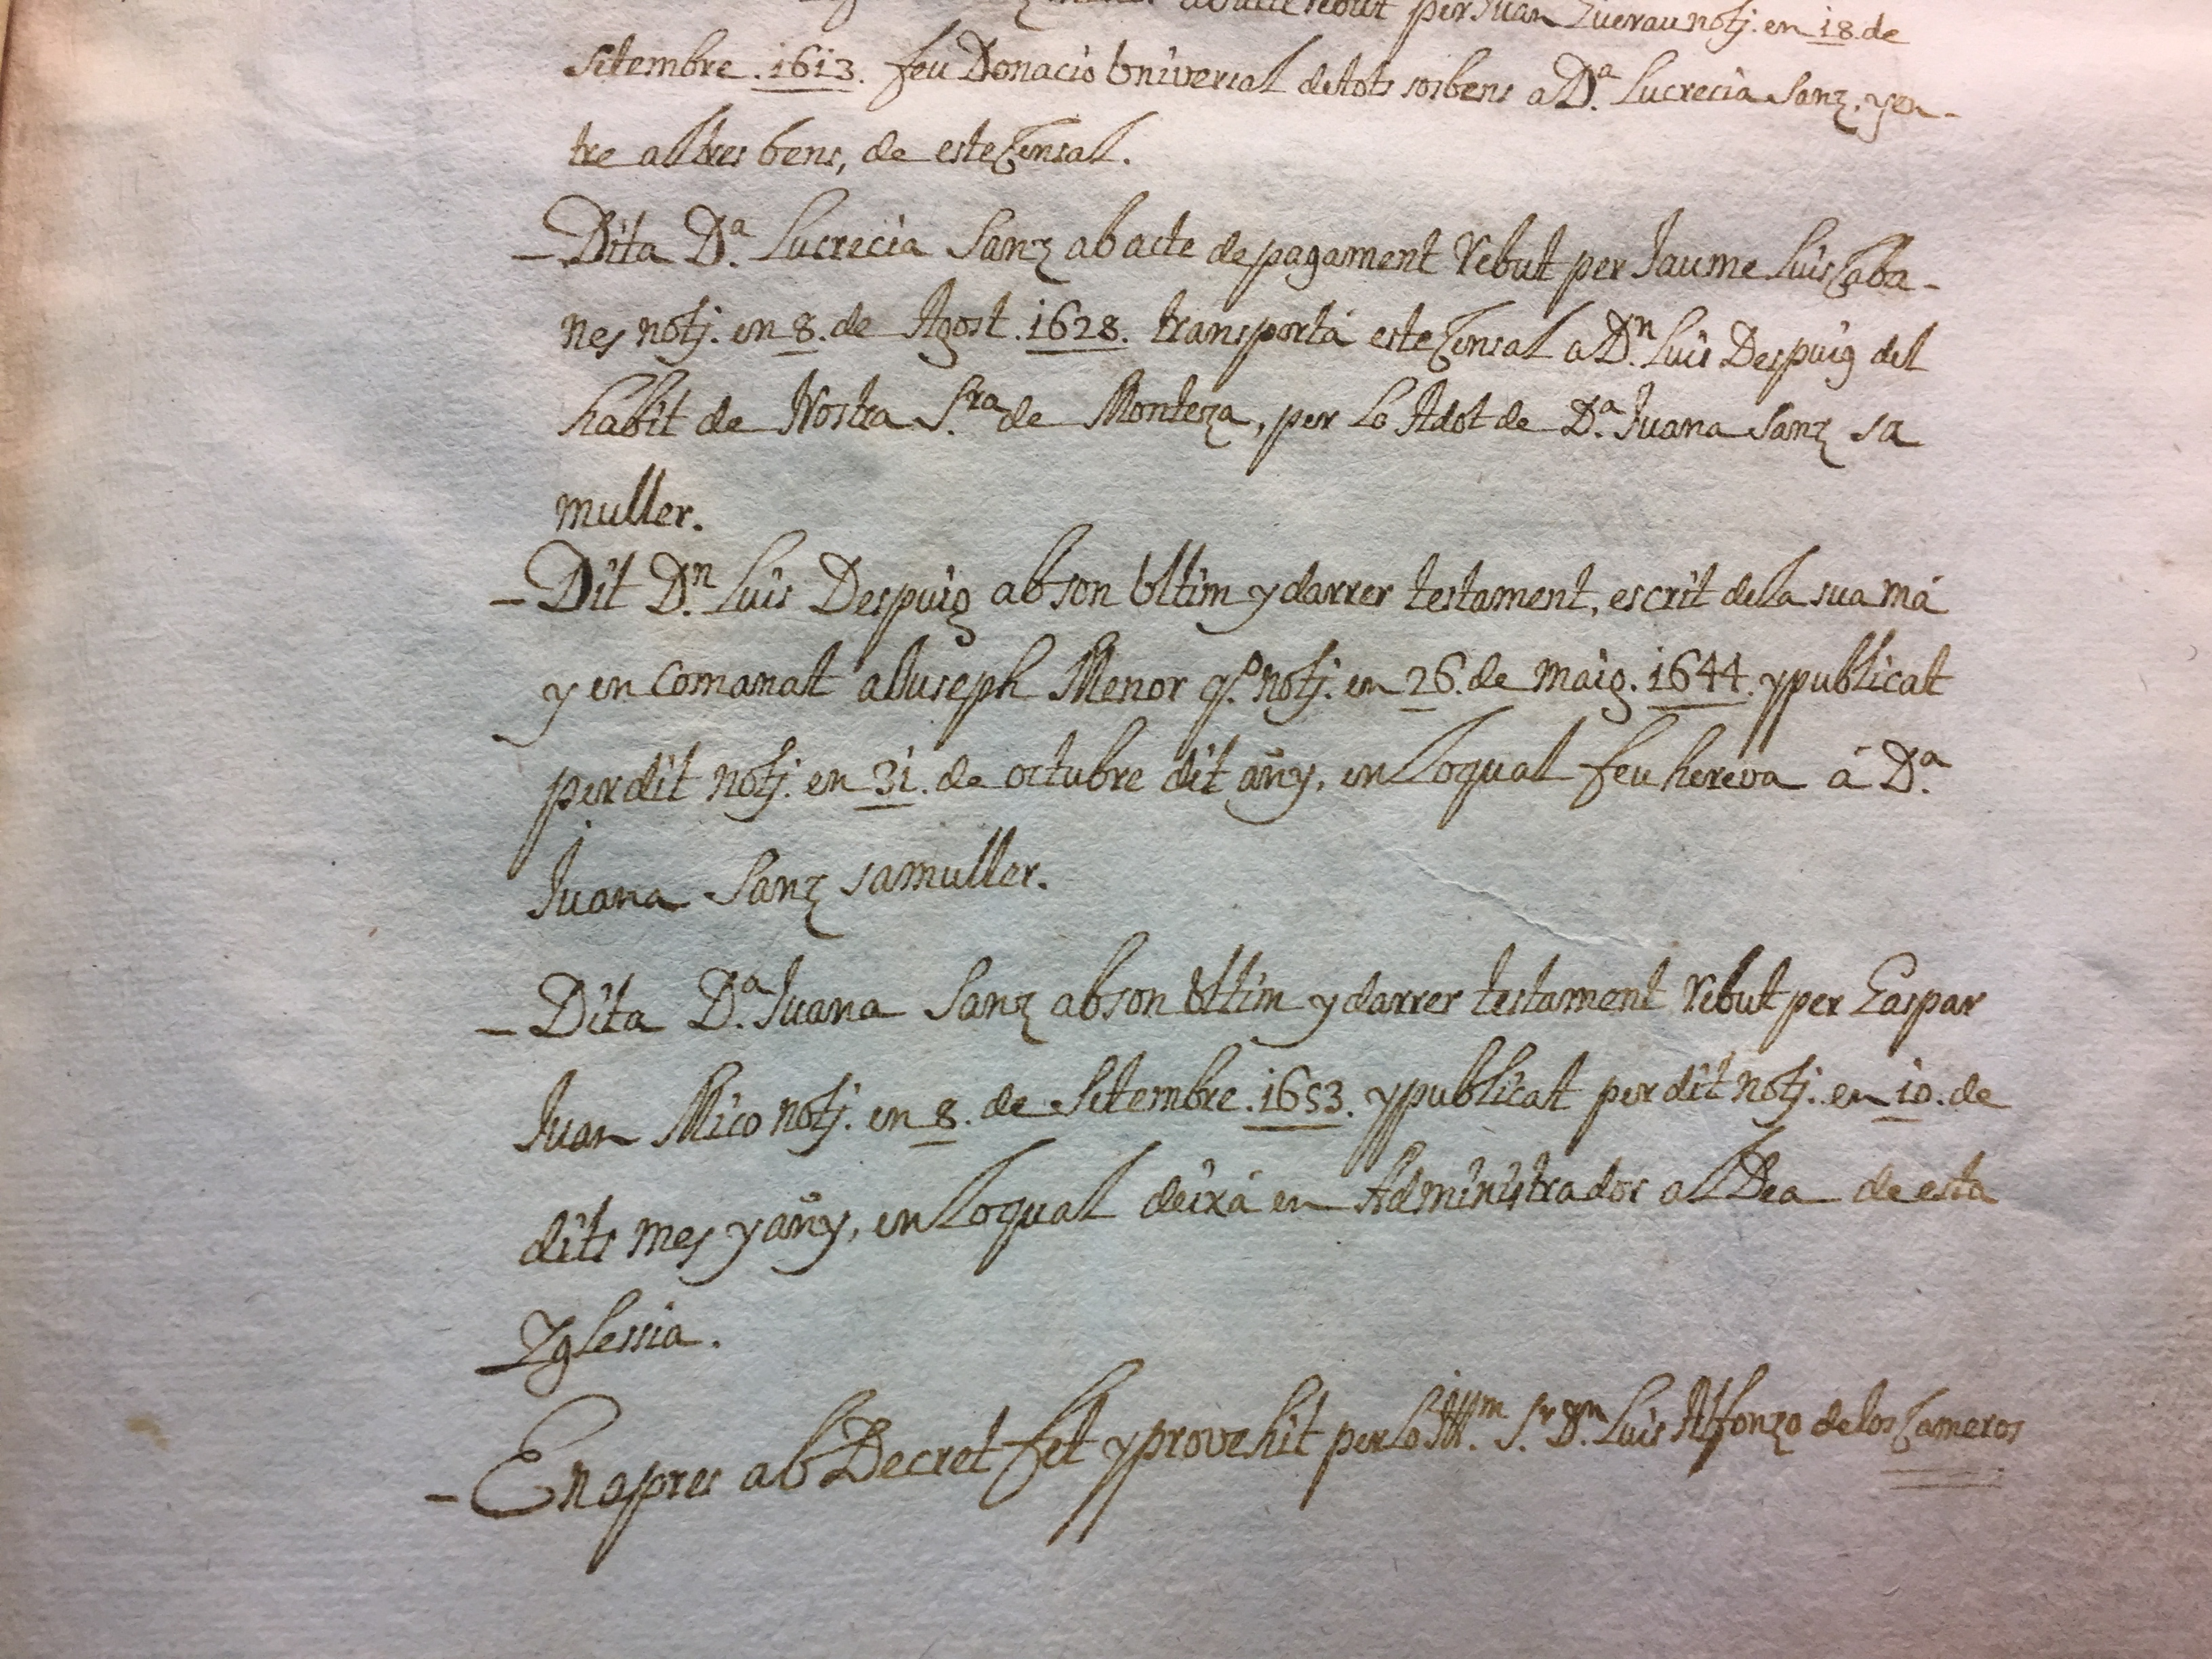 ab acte rebut per Juan Guerau notj. en 18. de
Setembre .1613. feu Donacio Universal de tots sos bens a D.ª Lucrecia Sanz, y en-
tre altres bens, de este Censal.
– Dita D.ª Lucrecia Sanz ab acte de pagament rebut per Jaume Luis Çaba-
nes notj. en 8. de Agost .1628. transportá este Censal a D.n Luis Despuig del
habit de Nostra S.ra de Monteza, per lo Adot de D.ª Juana Sanz sa
muller.
– Dit D.n Luis Despuig ab son Ultim y darrer testament, escrit de la sua má
y en comanat a Juseph Menor q.º notj. en 26. de Maig. 1644. y publicat
per dit notj. en 31. de octubre dit añy, en lo qual feu hereva á D.ª
Juana Sanz sa muller.
– Dita D.ª Juana Sanz ab son Ultim y darrer testament rebut per Gaspar
Juan Mico notj. en 8. de Setembre .1653. y publicat per dit notj. en 10. de
dits mes y añy, en lo qual deixá en Administrador al Dea de esta
Yglessia.
– En apres ab Decret fet y provehit per lo Ill.m S.r D.n Luis Alfonzo de los Cameros